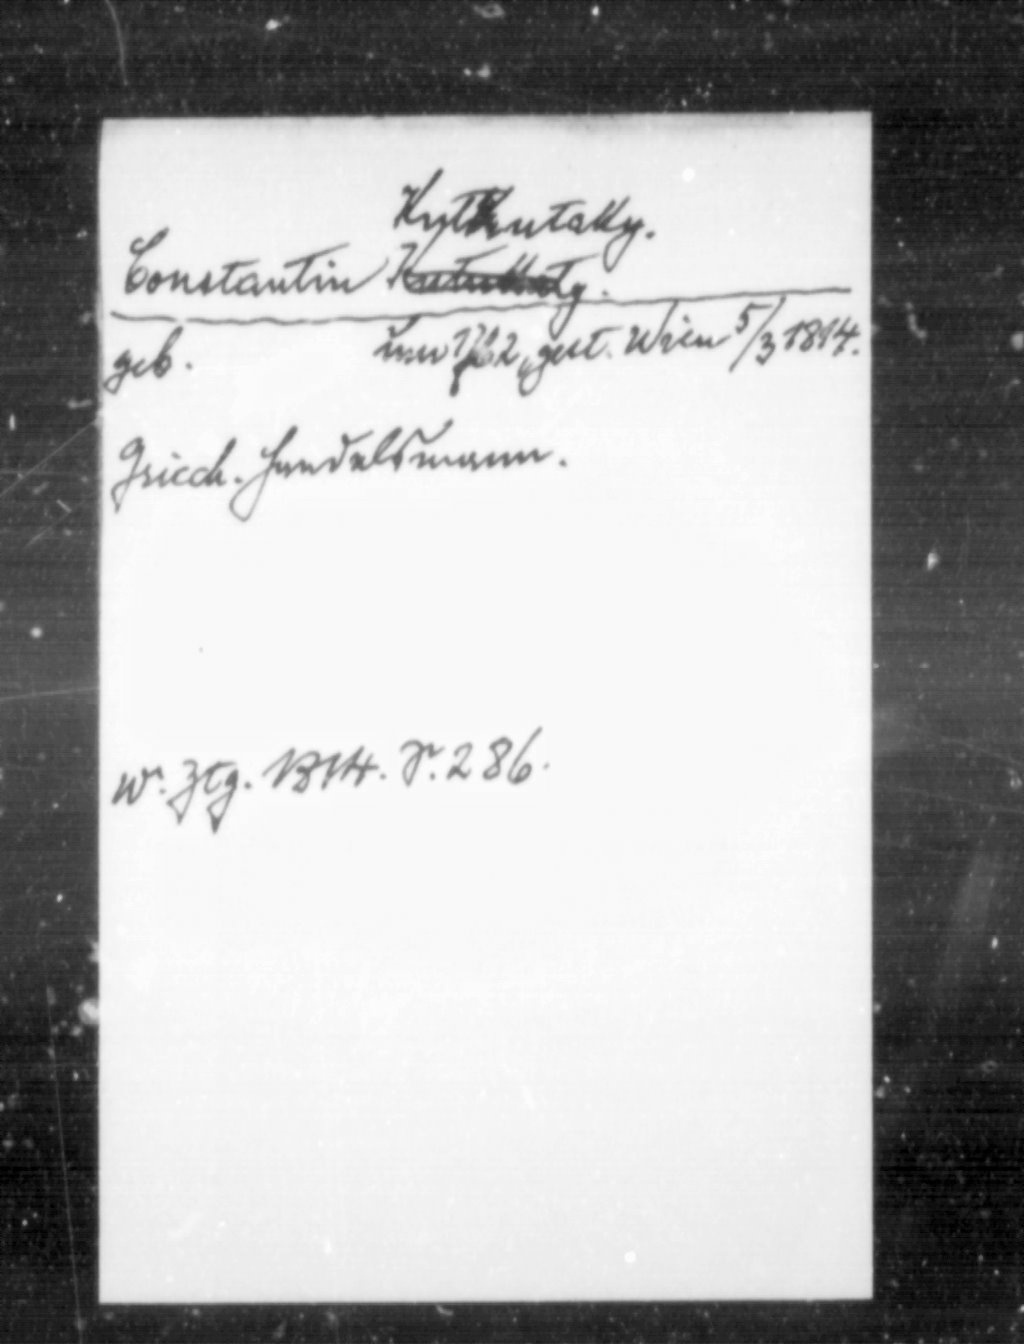 Kutkutaky.
Constantin
geb. um 1762, gest. Wien 5/3 1814.
Griech. Handelsmann.
W. Ztg. 1814. S. 286.